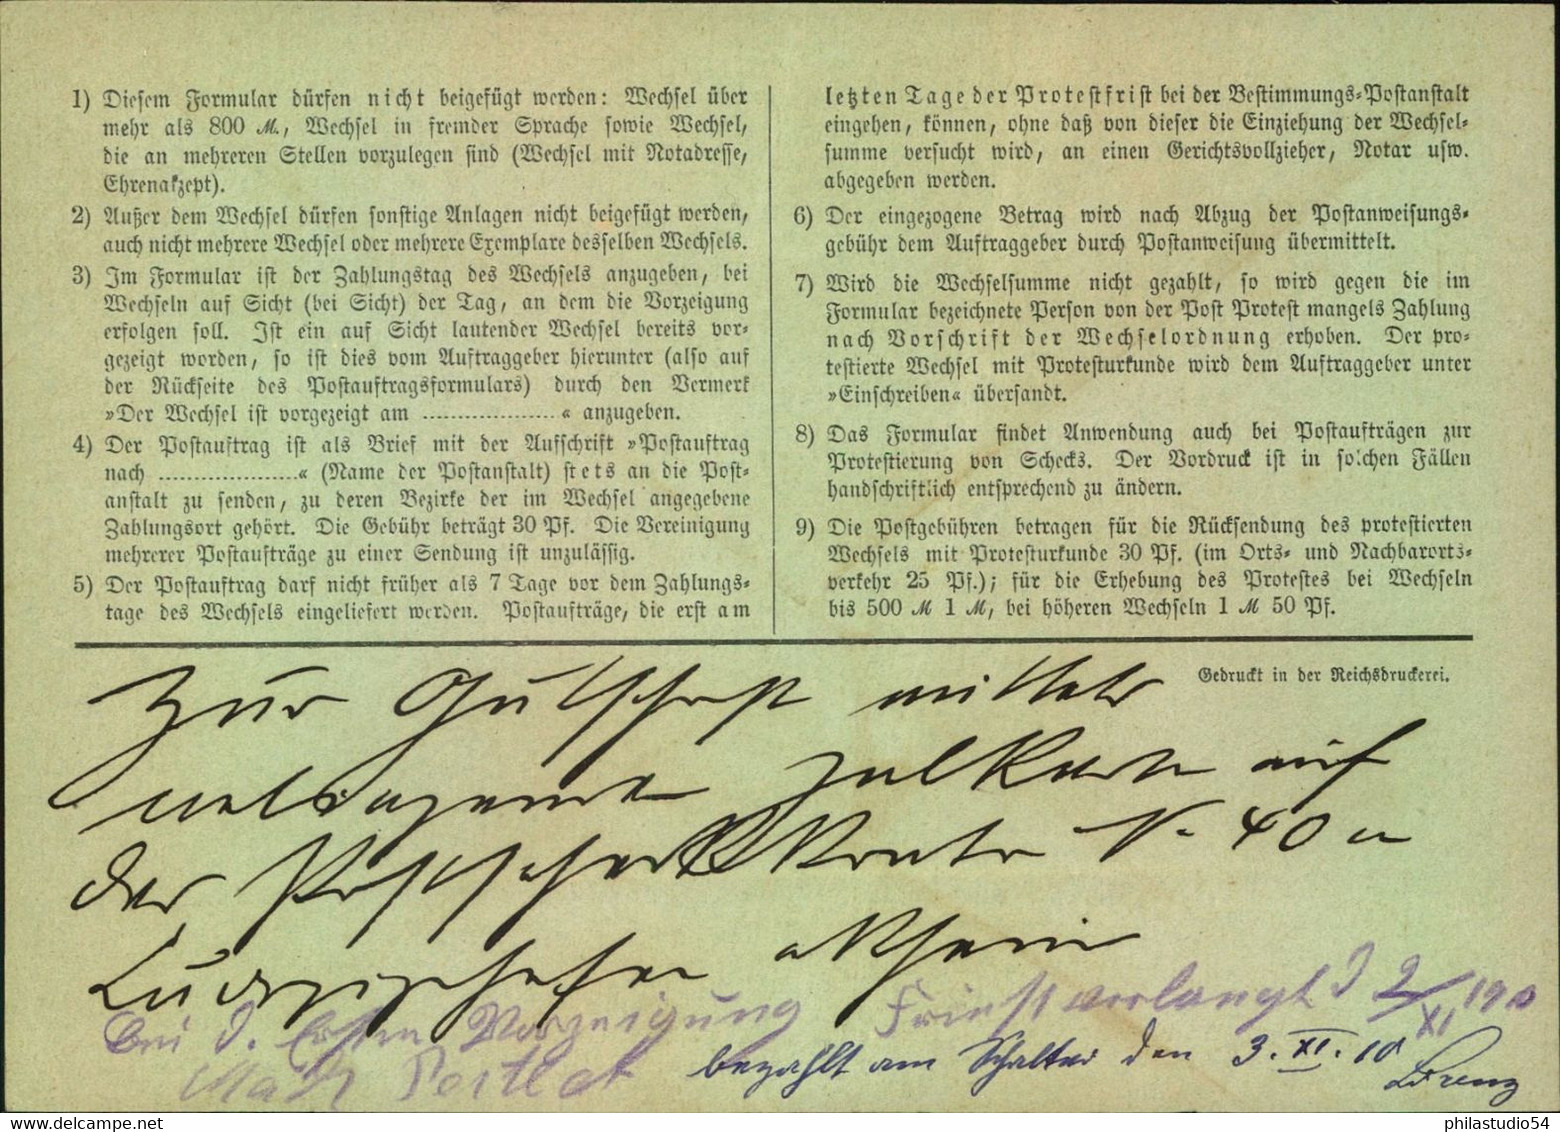 1) Diesem Formular dürfen nicht beigefügt werden: Wechsel über
mehr als 800 M., Wechsel in fremder Sprache sowie Wechsel,
die an mehreren Stellen vorzulegen sind (Wechsel mit Notadresse,
Ehrenakzept).
2) Außer dem Wechsel dürfen sonstige Anlagen nicht beigefügt werden,
auch nicht mehrere Wechsel oder mehrere Exemplare desselben Wechsels.
3) Im Formular ist der Zahlungstag des Wechsels anzugeben, bei
Wechseln auf Sicht (bei Sicht) der Tag, an dem die Vorzeigung
erfolgen soll. Ist ein auf Sicht lautender Wechsel bereits vor-
gezeigt worden, so ist dies vom Auftraggeber hierunter (also auf
der Rückseite des Postauftragsformulars) durch den Vermerk
»Der Wechsel ist vorgezeigt am ....................« anzugeben.
4) Der Postauftrag ist als Brief mit der Aufschrift »Postauftrag
nach .....................« (Name der Postanstalt) stets an die Post-
anstalt zu senden, zu deren Bezirke der im Wechsel angegebene
Zahlungsort gehört. Die Gebühr beträgt 30 Pf. Die Vereinigung
mehrerer Postaufträge zu einer Sendung ist unzulässig.
5) Der Postauftrag darf nicht früher als 7 Tage vor dem Zahlungs-
tage des Wechsels eingeliefert werden. Postaufträge, die erst am
letzten Tage der Protestfrist bei der Bestimmungs-Postanstalt
eingehen, können, ohne daß von dieser die Einziehung der Wechsel-
summe versucht wird, an einen Gerichtsvollzieher, Notar usw.
abgegeben werden.
6) Der eingezogene Betrag wird nach Abzug der Postanweisungs-
gebühr dem Auftraggeber durch Postanweisung übermittelt.
7) Wird die Wechselsumme nicht gezahlt, so wird gegen die im
Formular bezeichnete Person von der Post Protest mangels Zahlung
nach Vorschrift der Wechselordnung erhoben. Der pro-
testierte Wechsel mit Protesturkunde wird dem Auftraggeber unter
»Einschreiben« übersandt.
8) Das Formular findet Anwendung auch bei Postaufträgen zur
Protestierung von Schecks. Der Vordruck ist in solchen Fällen
handschriftlich entsprechend zu ändern.
9) Die Postgebühren betragen für die Rücksendung des protestierten
Wechsels mit Protesturkunde 30 Pf. (im Orts- und Nachbarorts-
verkehr 25 Pf.); für die Erhebung des Protestes bei Wechseln
bis 500 M 1 M, bei höheren Wechseln 1 M 50 Pf.
Gedruckt in der Reichsdruckerei.
Zur Gutschrift mittels
Zalkarte auf
der Postscheck Konto N. 40
Ludwigshafen a Rhein
Bei d. Ersten Vorzeigung Frist verlangt d 2/XI 190
bezahlt am Schalter den 3. XI. 10
Lorenz
philastudio54